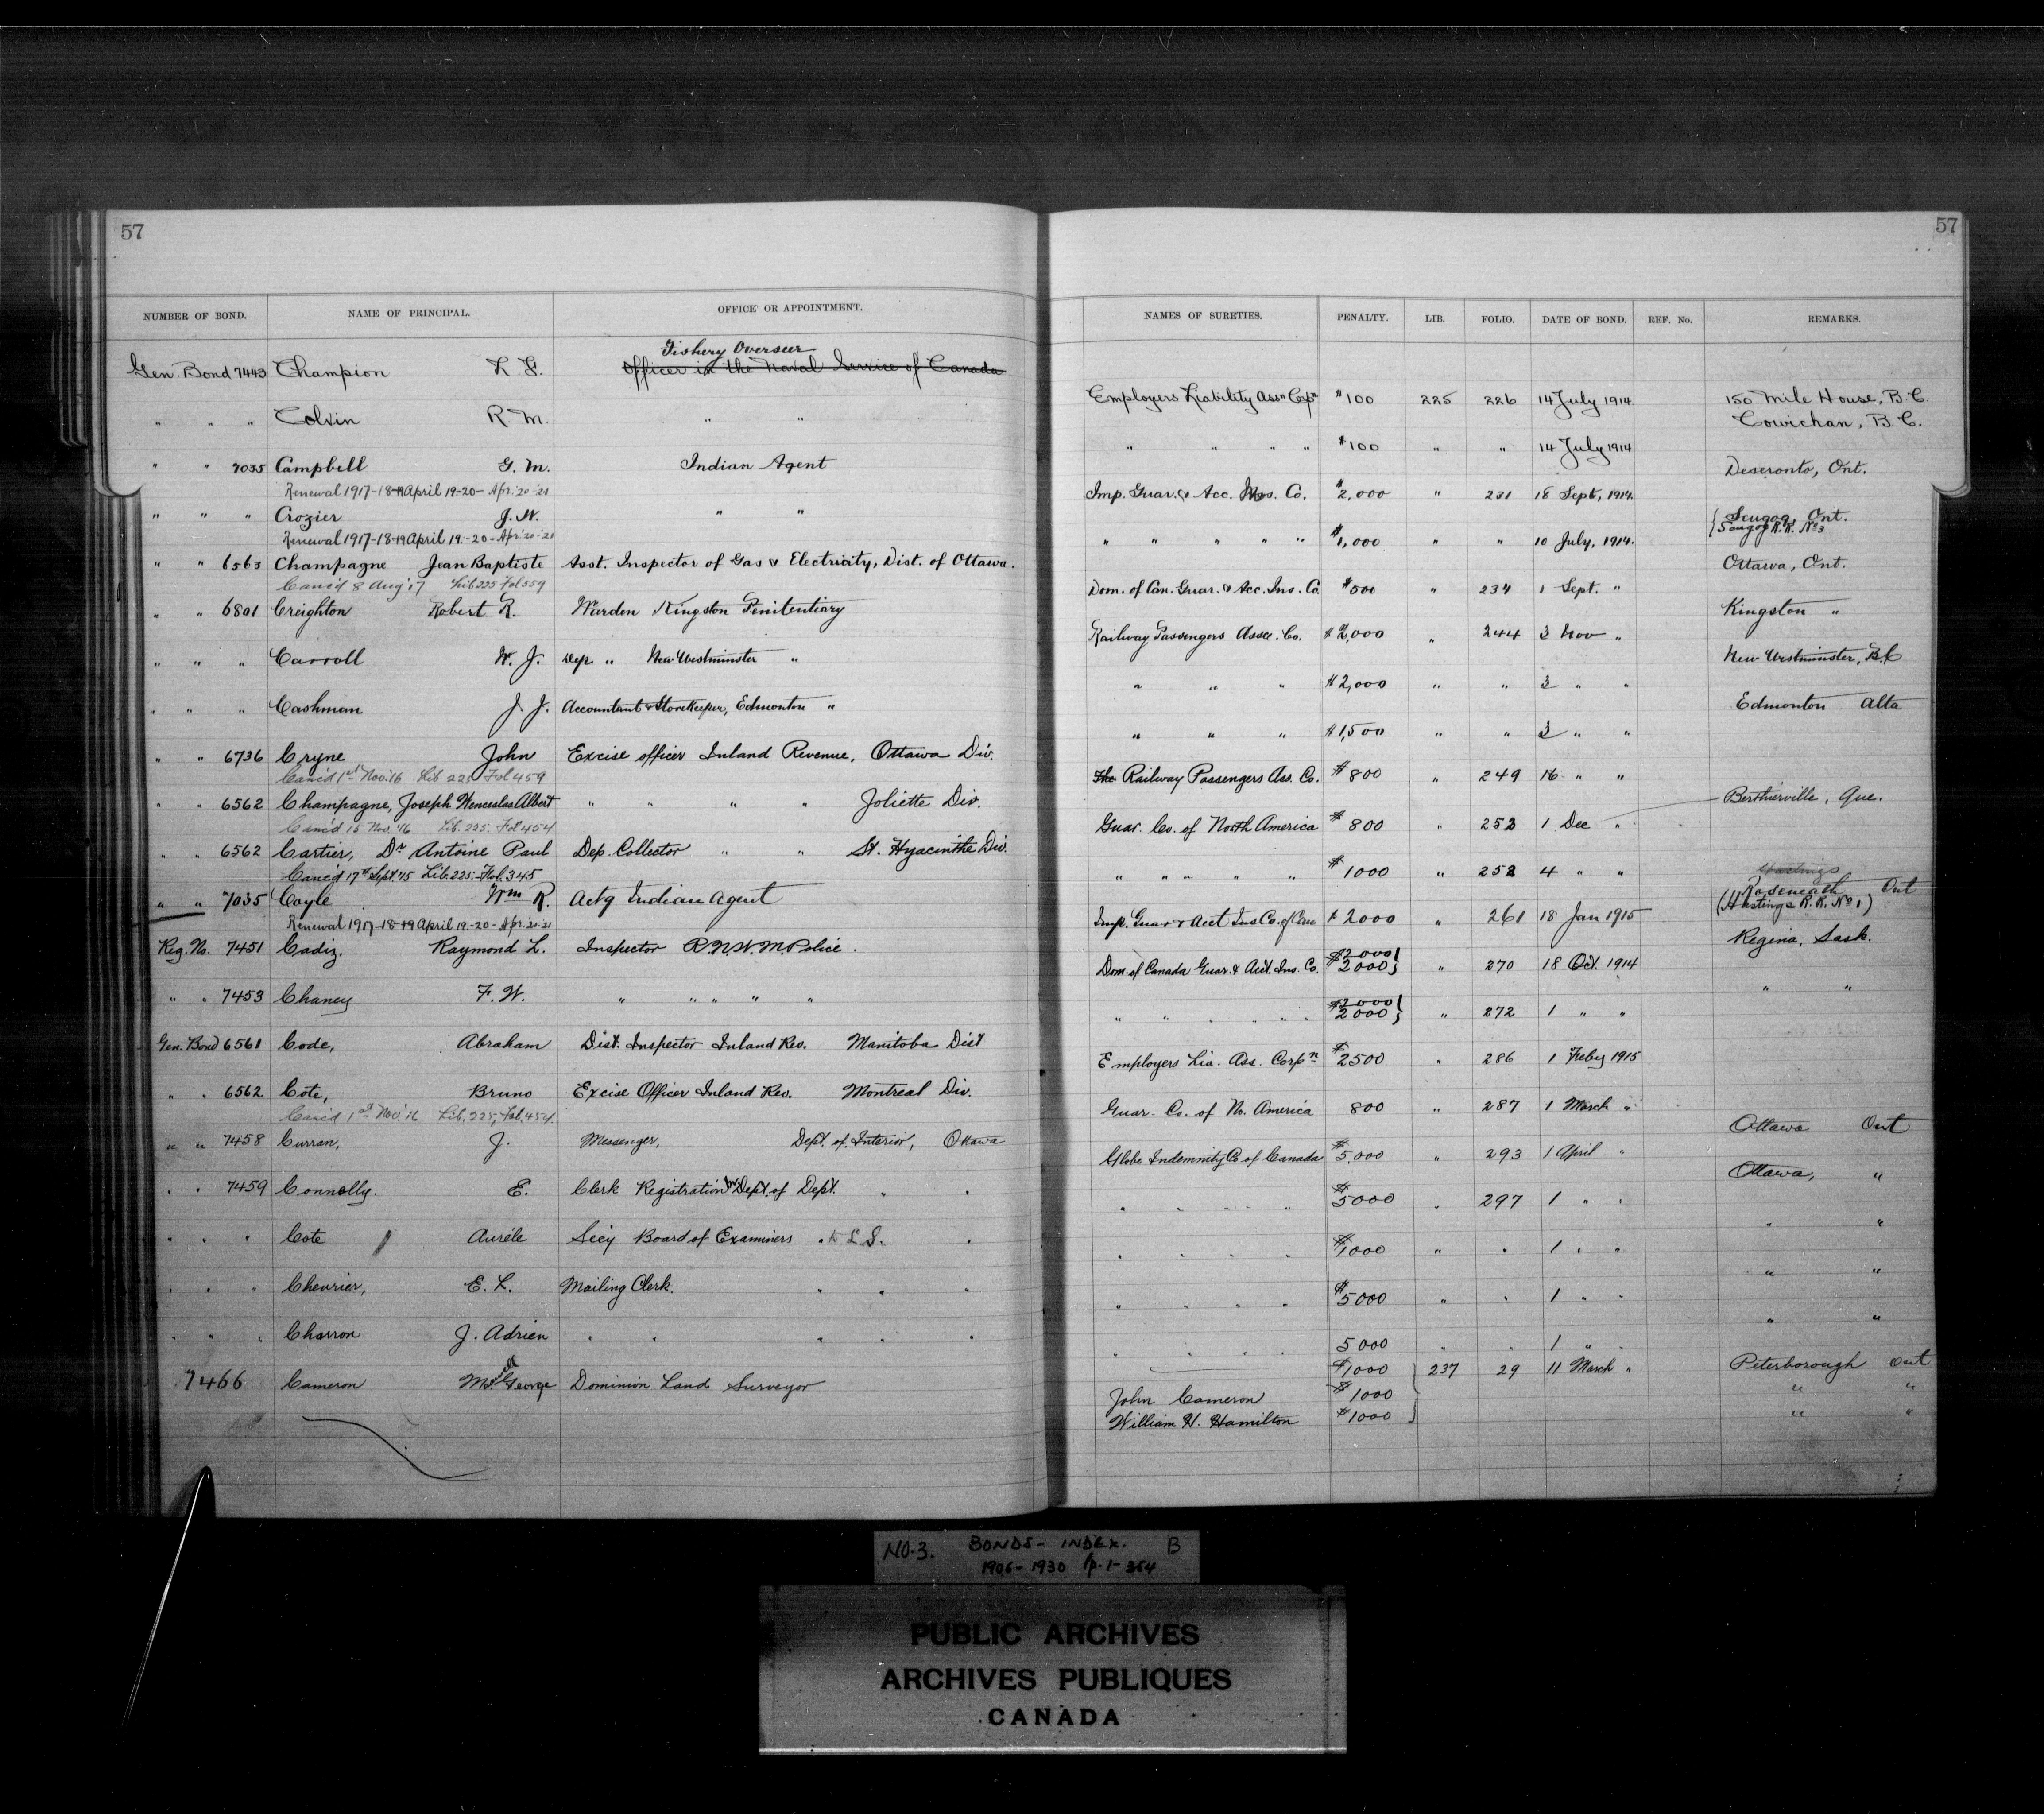 57
NUMBER OF BOND. NAME OF PRINCIPAL. OFFICE OR APPOINTMENT.
Fishery Overseer
Gen. Bond 7443 Champion L. G. Officer in the Naval Service of Canada
" " " Colvin R. M. " "
" " 7035 Campbell G. M. Indian Agent
Renewal 1917-18-19 April 19-20- Apr. '20-'21
" " " Crozier J. W. " "
Renewal 1917-18-19 April 19-20- Apr. '20-'21
" " 6563 Champagne Jean Baptiste Asst. Inspector of Gas & Electricity, Dist. of Ottawa.
Canc'd 8 Aug '17 Lib 225 Fol 559
" " 6801 Creighton Robert R. Warden Kingston Penitentiary
" " " Carroll W. J. Dep. " New Westminster "
" " " Cashman J. J. Accountant & Storekeeper, Edmonton "
" " 6736 Cryne John Excise officer Inland Revenue, Ottawa Div.
Canc'd 1st Nov. '16 Lib 225 Fol 459
" " 6562 Champagne, Joseph Wenceslas Albert " " " " Joliette Div.
Canc'd 15 Nov. '16 Lib. 225. Fol 454
" " 6562 Cartier, Dr Antoine Paul Dep. Collector " " St. Hyacinthe Div.
Canc'd 17th Sept. '15 Lib. 225.- Fol. 345
" " 7035 Coyle Wm R. Actg Indian Agent
Renewal 1917-18-19 April 19-20- Apr. '20-'21
Reg. No. 7451 Cadiz. Raymond L. Inspector R. N. W. M. Police.
" " 7453 Chaney F. W. " " " " "
Gen. Bond 6561 Code, Abraham Dist. Inspector Inland Rev. Manitoba Dist
" " 6562 Cote, Bruno Excise Officer Inland Rev. Montreal Div.
Canc'd 1st Nov. '16 Lib. 225, Fol. 454
" " 7458 Curran, J. Messenger, Dept. of Interior, Ottawa
" " 7459 Connolly. E. Clerk Registration Dept. of Dept. " "
" " " Cote Auréle Secy Board of Examiners " D L S. "
" " " Chevrier, E. L. Mailing Clerk. " " "
" " " Charron J. Adrien " " " " "
7466 Cameron George Dominion Land Surveyor
57
NAMES OF SURETIES. PENALTY. LIB. FOLIO. DATE OF BOND. REF. No. REMARKS.
Employers Liability Assn Corpn $100 225 226 14 July 1914 150 Mile House, B.C.
" " " " $100 " " 14 July 1914 Cowichan, B.C.
Imp. Guar. & Acc. Ins. Co. $2,000 " 231 18 Sept, 1914. Deseronto, Ont.
" " " " " $1,000 " " 10 July, 1914. Scugog, Ont.
Scugog R.R. No 3
Dom. of Can. Guar. & Acc. Ins. Co. $500 " 234 1 Sept. " Ottawa, Ont.
Railway Passengers Assce. Co. $2,000 " 244 3 Nov " Kingston "
" " " $2,000 " " 3 " " New Westminster, B.C
" " " $1,500 " " 3 " " Edmonton Alta
The Railway Passengers Ass. Co. $800 " 249 16 " "
Guar. Co. of North America $800 " 252 1 Dec " Berthierville, Que.
" " " " " $1000 " 252 4 " "
Hastings
Imp. Guar & Acct Ins Co. of Can $2000 " 261 18 Jan 1915 Roseneath Ont
(Hastings R.R. No 1)
Dom. of Canada Guar. & Acct. Ins. Co. $2000 $2000 } " 270 18 Oct. 1914 Regina, Sask.
" " " " " " $2000 $2000 } " 272 1 " " " "
Employers Lia. Ass. Corpn $2500 " 286 1 Feby 1915
Guar. Co. of No. America 800 " 287 1 March "
Globe Indemnity Co of Canada $5,000 " 293 1 April " Ottawa Ont
" " " " " $5000 " 297 1 " " Ottawa, "
" " " " $1000 " " 1 " " " "
" " " " $5000 " " 1 " " " "
" " " " 5000 " " 1 " " " "
$1000 } 237 29 11 March " Peterborough Ont
John Cameron $1000 " "
William H. Hamilton $1000 " "
NO. 3. BONDS- INDEX. B
1906-1930 p. 1-354
PUBLIC ARCHIVES
ARCHIVES PUBLIQUES
CANADA